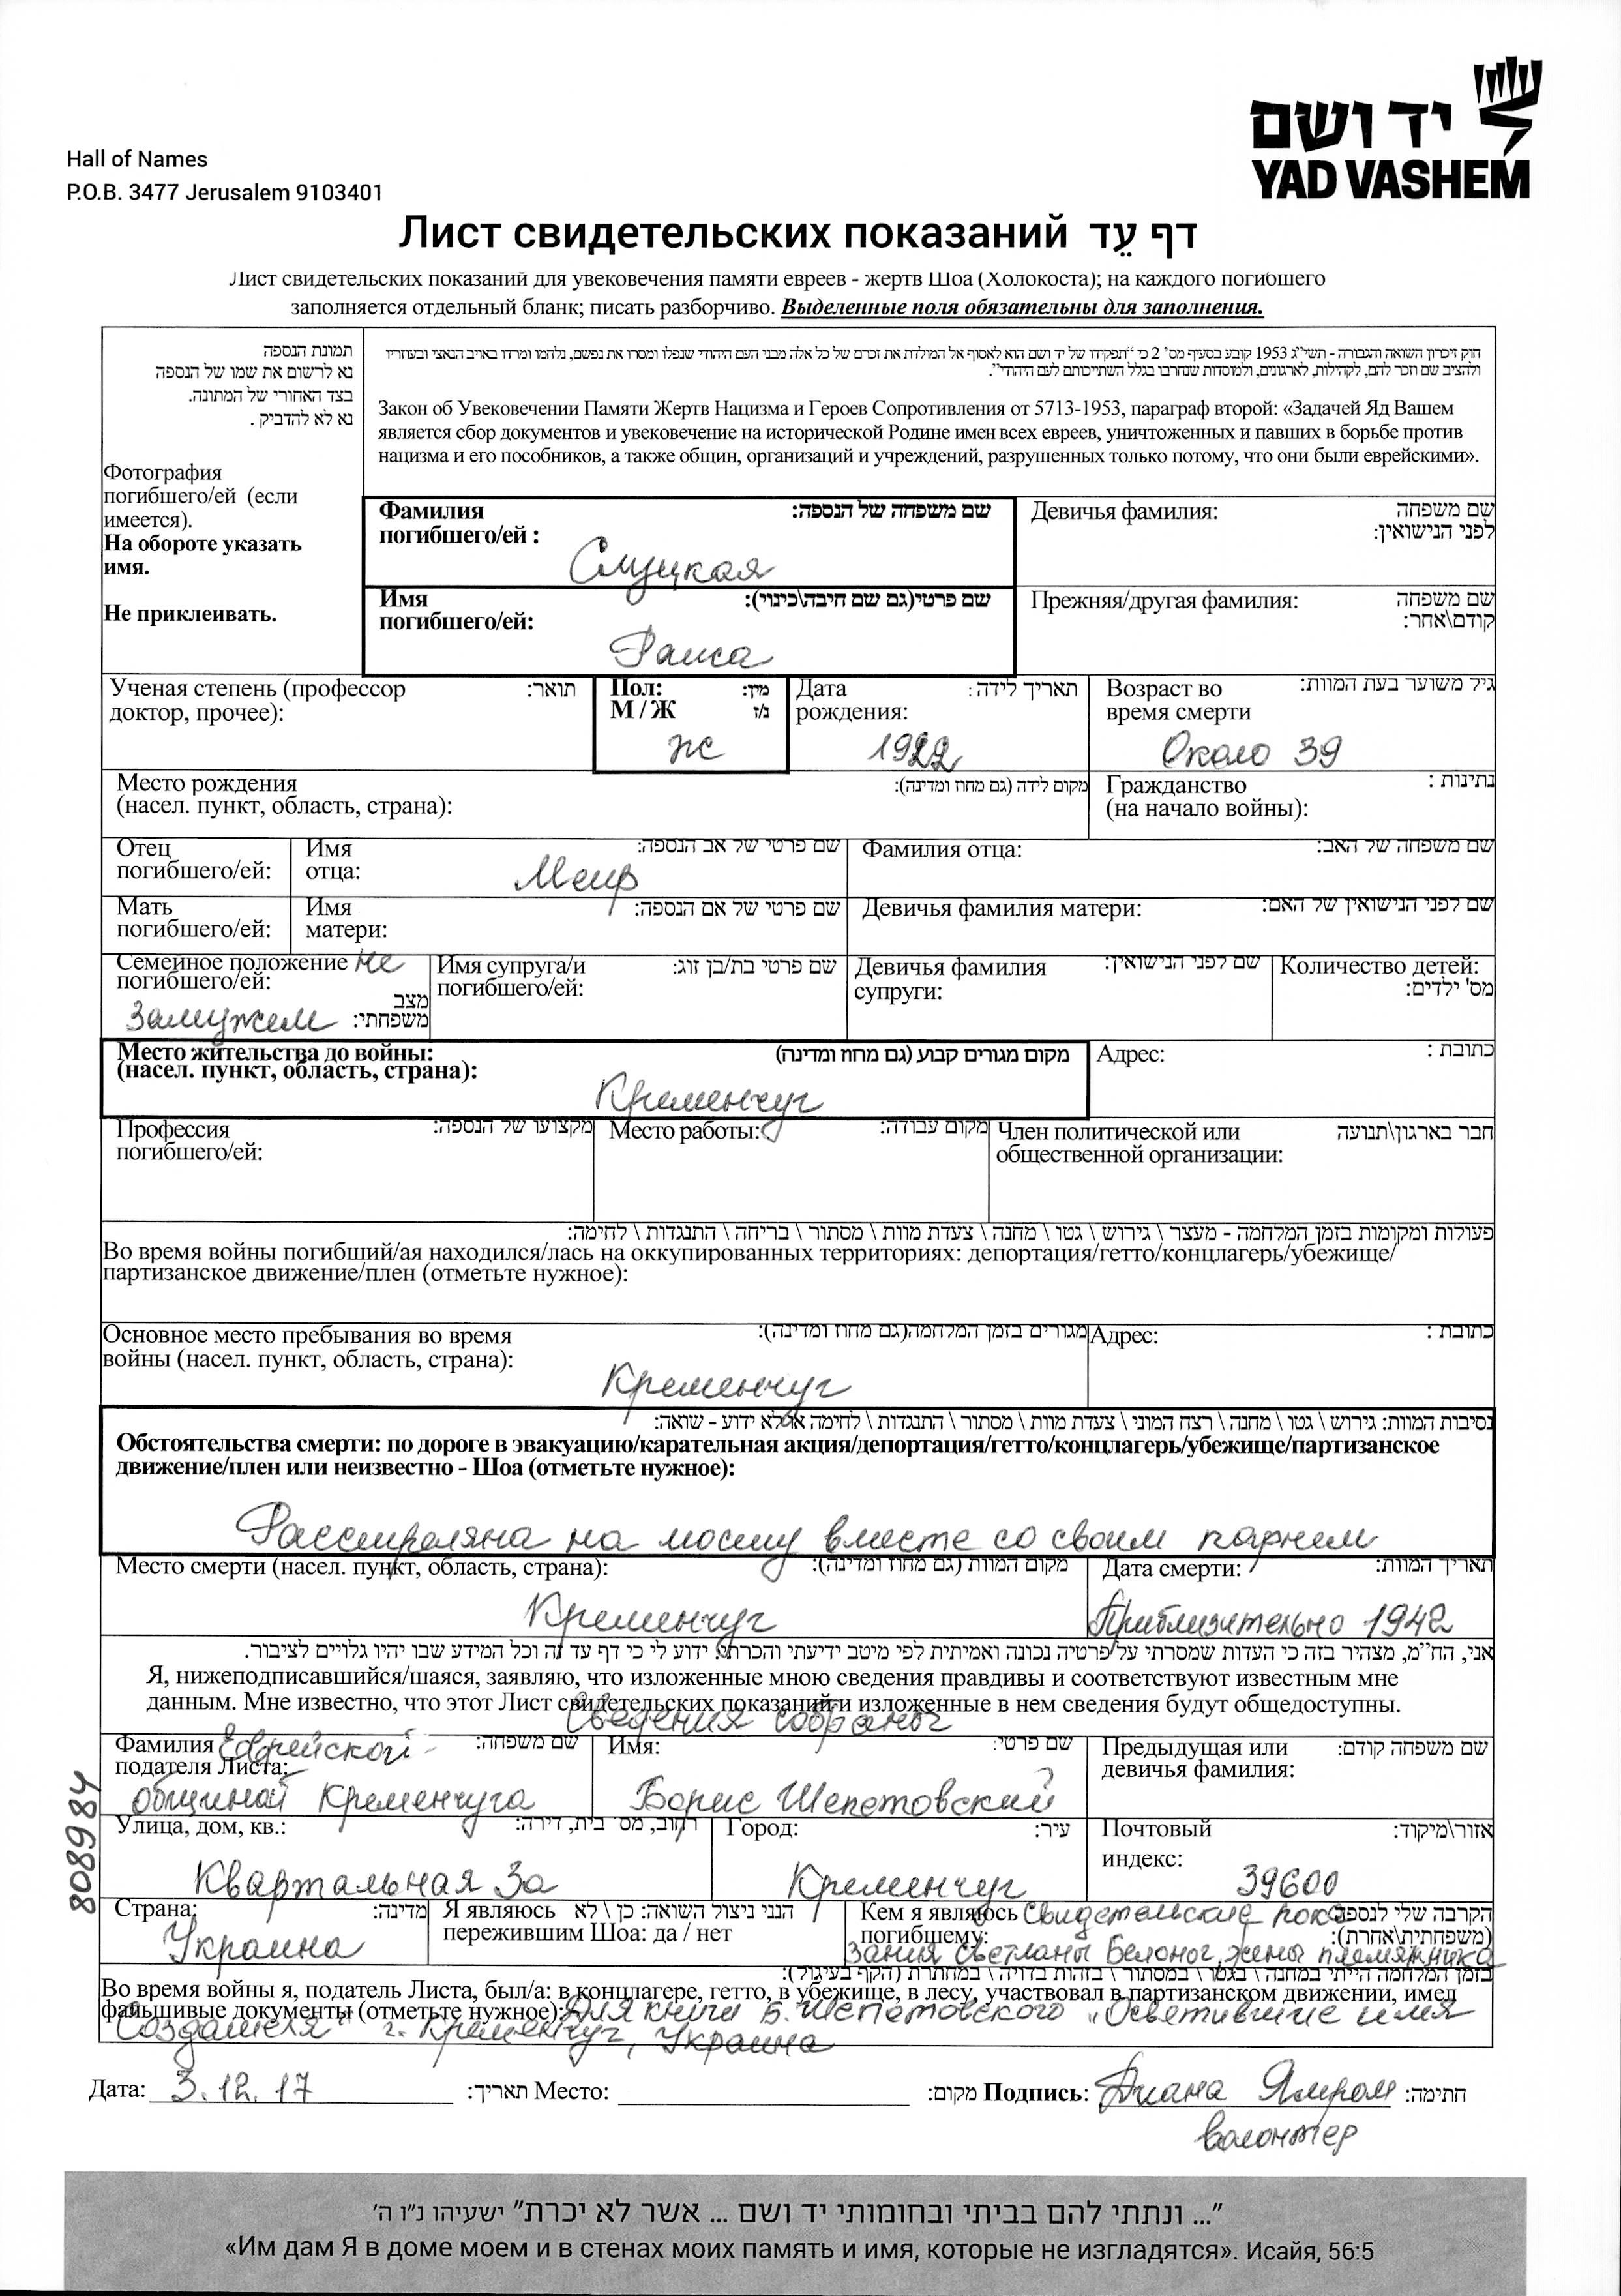 יד ושם
YAD VASHEM
Hall of Names
P.O.B. 3477 Jerusalem 9103401
Лист свидетельских показаний דף עֵד
Лист свидетельских показаний для увековечения памяти евреев - жертв Шоа (Холокоста); на каждого погибшего
заполняется отдельный бланк; писать разборчиво. Выделенные поля обязательны для заполнения.
תמונת הנספה
נא לרשום את שמו של הנספה
בצד האחורי של המתונה.
נא לא להדביק .
Фотография
погибшего/ей (если
имеется).
На обороте указать
имя.
Не приклеивать.
חוק זיכרון השואה והגבורה - תשי"ג 1953 קובע בסעיף מס' 2 כי "תפקידו של יד ושם הוא לאסוף אל המולדת את זכרם של כל אלה מבני העם היהודי שנפלו ומסרו את נפשם, נלחמו ומרדו באויב הנאצי ובעוזריו
ולהציב שם וזכר להם, לקהילות, לארגונים, ולמוסדות שנחרבו בגלל השתייכותם לעם היהודי".
Закон об Увековечении Памяти Жертв Нацизма и Героев Сопротивления от 5713-1953, параграф второй: «Задачей Яд Вашем
является сбор документов и увековечение на исторической Родине имен всех евреев, уничтоженных и павших в борьбе против
нацизма и его пособников, а также общин, организаций и учреждений, разрушенных только потому, что они были еврейскими».
Фамилия שם משפחה של הנספה:
погибшего/ей :
Слуцкая
Девичья фамилия: שם משפחה
לפני הנישואין:
Имя שם פרטי(גם שם חיבה\כינוי):
погибшего/ей:
Раиса
Прежняя/другая фамилия: שם משפחה
קודם\אחר:
Ученая степень (профессор תואר:
доктор, прочее):
Пол: מין:
М / Ж ז/נ
ж
Дата תאריך לידה :
рождения:
1922
Возраст во גיל משוער בעת המוות:
время смерти
Около 39
Место рождения מקום לידה (גם מחוז ומדינה):
(насел. пункт, область, страна):
Гражданство נתינות :
(на начало войны):
Отец
погибшего/ей:
Имя שם פרטי של אב הנספה:
отца:
Меир
Фамилия отца: שם משפחה של האב:
Мать
погибшего/ей:
Имя שם פרטי של אם הנספה:
матери:
Девичья фамилия матери: שם לפני הנישואין של האם:
Семейное положение не
погибшего/ей:
מצב
замужем משפחתי:
Имя супруга/и שם פרטי בת/בן זוג:
погибшего/ей:
Девичья фамилия שם לפני הנישואין:
супруги:
Количество детей:
מס' ילדים:
Место жительства до войны: מקום מגורים קבוע (גם מחוז ומדינה)
(насел. пункт, область, страна):
Кременчуг
Адрес: כתובת :
Профессия מקצועו של הנספה:
погибшего/ей:
Место работы: מקום עבודה:
Член политической или חבר בארגון\תנועה
общественной организации:
פעולות ומקומות בזמן המלחמה - מעצר \ גירוש \ גטו \ מחנה \ צעדת מוות \ מסתור \ בריחה \ התנגדות \ לחימה:
Во время войны погибший/ая находился/лась на оккупированных территориях: депортация/гетто/концлагерь/убежище/
партизанское движение/плен (отметьте нужное):
Основное место пребывания во время מגורים בזמן המלחמה(גם מחוז ומדינה):
войны (насел. пункт, область, страна):
Кременчуг
Адрес: כתובת :
נסיבות המוות: גירוש \ גטו \ מחנה \ רצח המוני \ צעדת מוות \ מסתור \ התנגדות \ לחימה או לא ידוע - שואה:
Обстоятельства смерти: по дороге в эвакуацию/карательная акция/депортация/гетто/концлагерь/убежище/партизанское
движение/плен или неизвестно - Шоа (отметьте нужное):
Расстреляна на мосту вместе со своим парнем
Место смерти (насел. пункт, область, страна): מקום המוות (גם מחוז ומדינה):
Кременчуг
Дата смерти: תאריך המוות:
Приблизительно 1942
אני, הח"מ, מצהיר בזה כי העדות שמסרתי על פרטיה נכונה ואמיתית לפי מיטב ידיעתי והכרתי. ידוע לי כי דף עד זה וכל המידע שבו יהיו גלויים לציבור.
Я, нижеподписавшийся/шаяся, заявляю, что изложенные мною сведения правдивы и соответствуют известным мне
данным. Мне известно, что этот Лист свидетельских показаний и изложенные в нем сведения будут общедоступны.
Сведения собраны
Фамилия Еврейской שם משפחה:
подателя Листа:
общиной Кременчуга
Имя: שם פרטי:
Борис Шепетовский
Предыдущая или שם משפחה קודם:
девичья фамилия:
Улица, дом, кв.: רחוב, מס' בית, דירה:
Квартальная 3а
Город: עיר:
Кременчуг
Почтовый אזור\מיקוד:
индекс:
39600
8089984
Страна: מדינה:
Украина
Я являюсь הנני ניצול השואה: כן \ לא
пережившим Шоа: да / нет
Кем я являюсь Свидетельские пока הקרבה שלי לנספה
погибшему: (משפחתית\אחרת):
зания Светланы Белоног, жены племянника
בזמן המלחמה הייתי במחנה \ בגטו \ במסתור \ בזהות בדויה \ במחתרת (הקף בעיגול):
Во время войны я, податель Листа, был/а: в концлагере, гетто, в убежище, в лесу, участвовал в партизанском движении, имел
фальшивые документы (отметьте нужное): Для книги Б. Шепетовского "Осветившие имя
Создателя" г. Кременчуг, Украина
Дата: 3.12.17 תאריך: Место: מקום: Подпись: Диана Ямпол חתימה:
волонтер
"... ונתתי להם בביתי ובחומותי יד ושם ... אשר לא יכרת" ישעיהו נ"ו ה'
«Им дам Я в доме моем и в стенах моих память и имя, которые не изгладятся». Исайя, 56:5